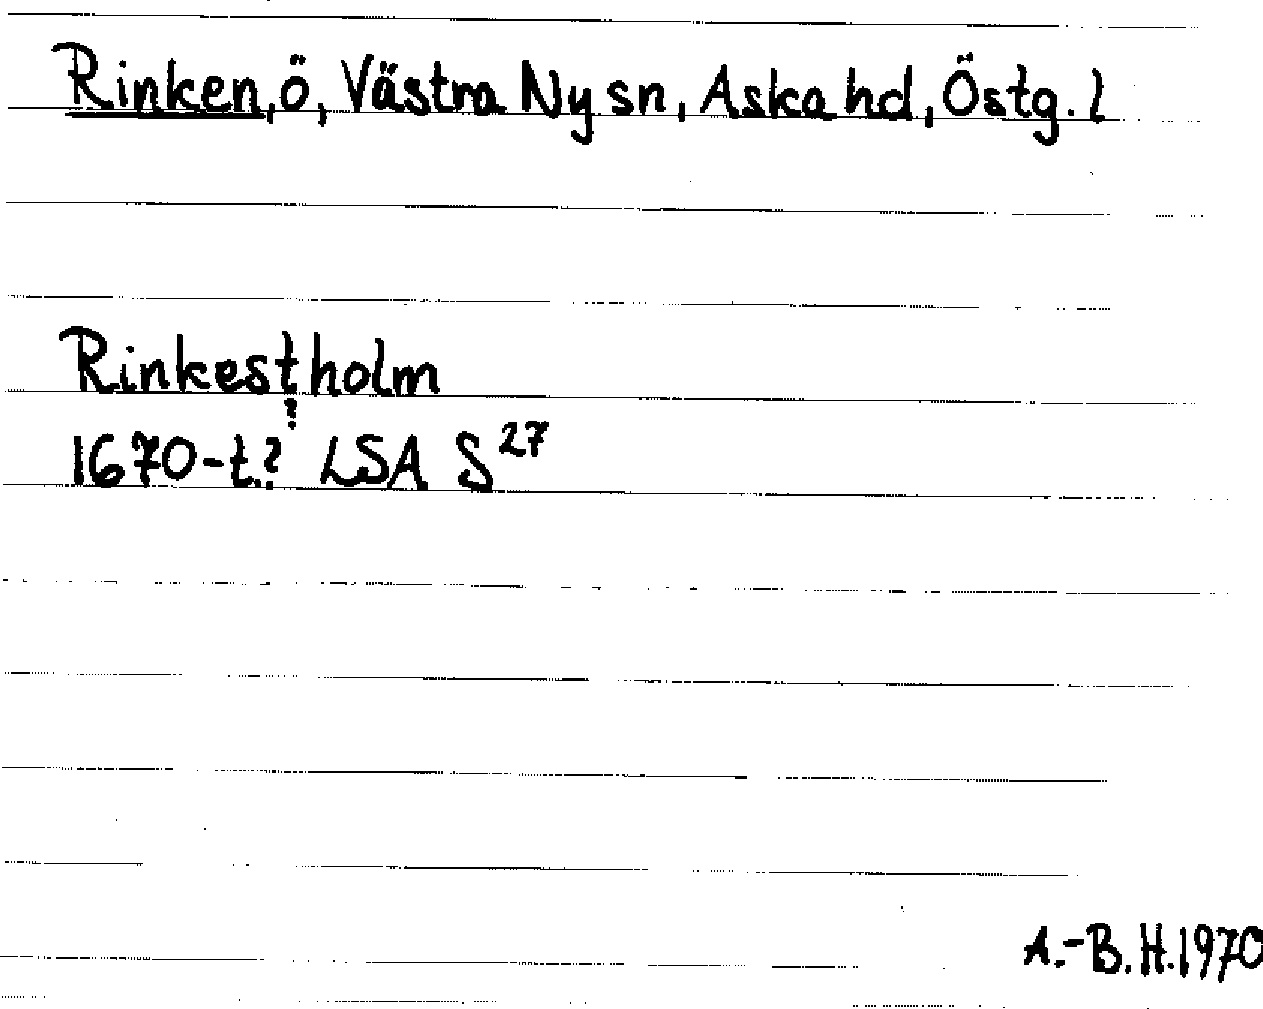 Rinken, ö, Västra Ny sn, Aska hd, Östg. l
Rinkestholm
?
1670-t.? LSA S 27
A.-B. H. 1970